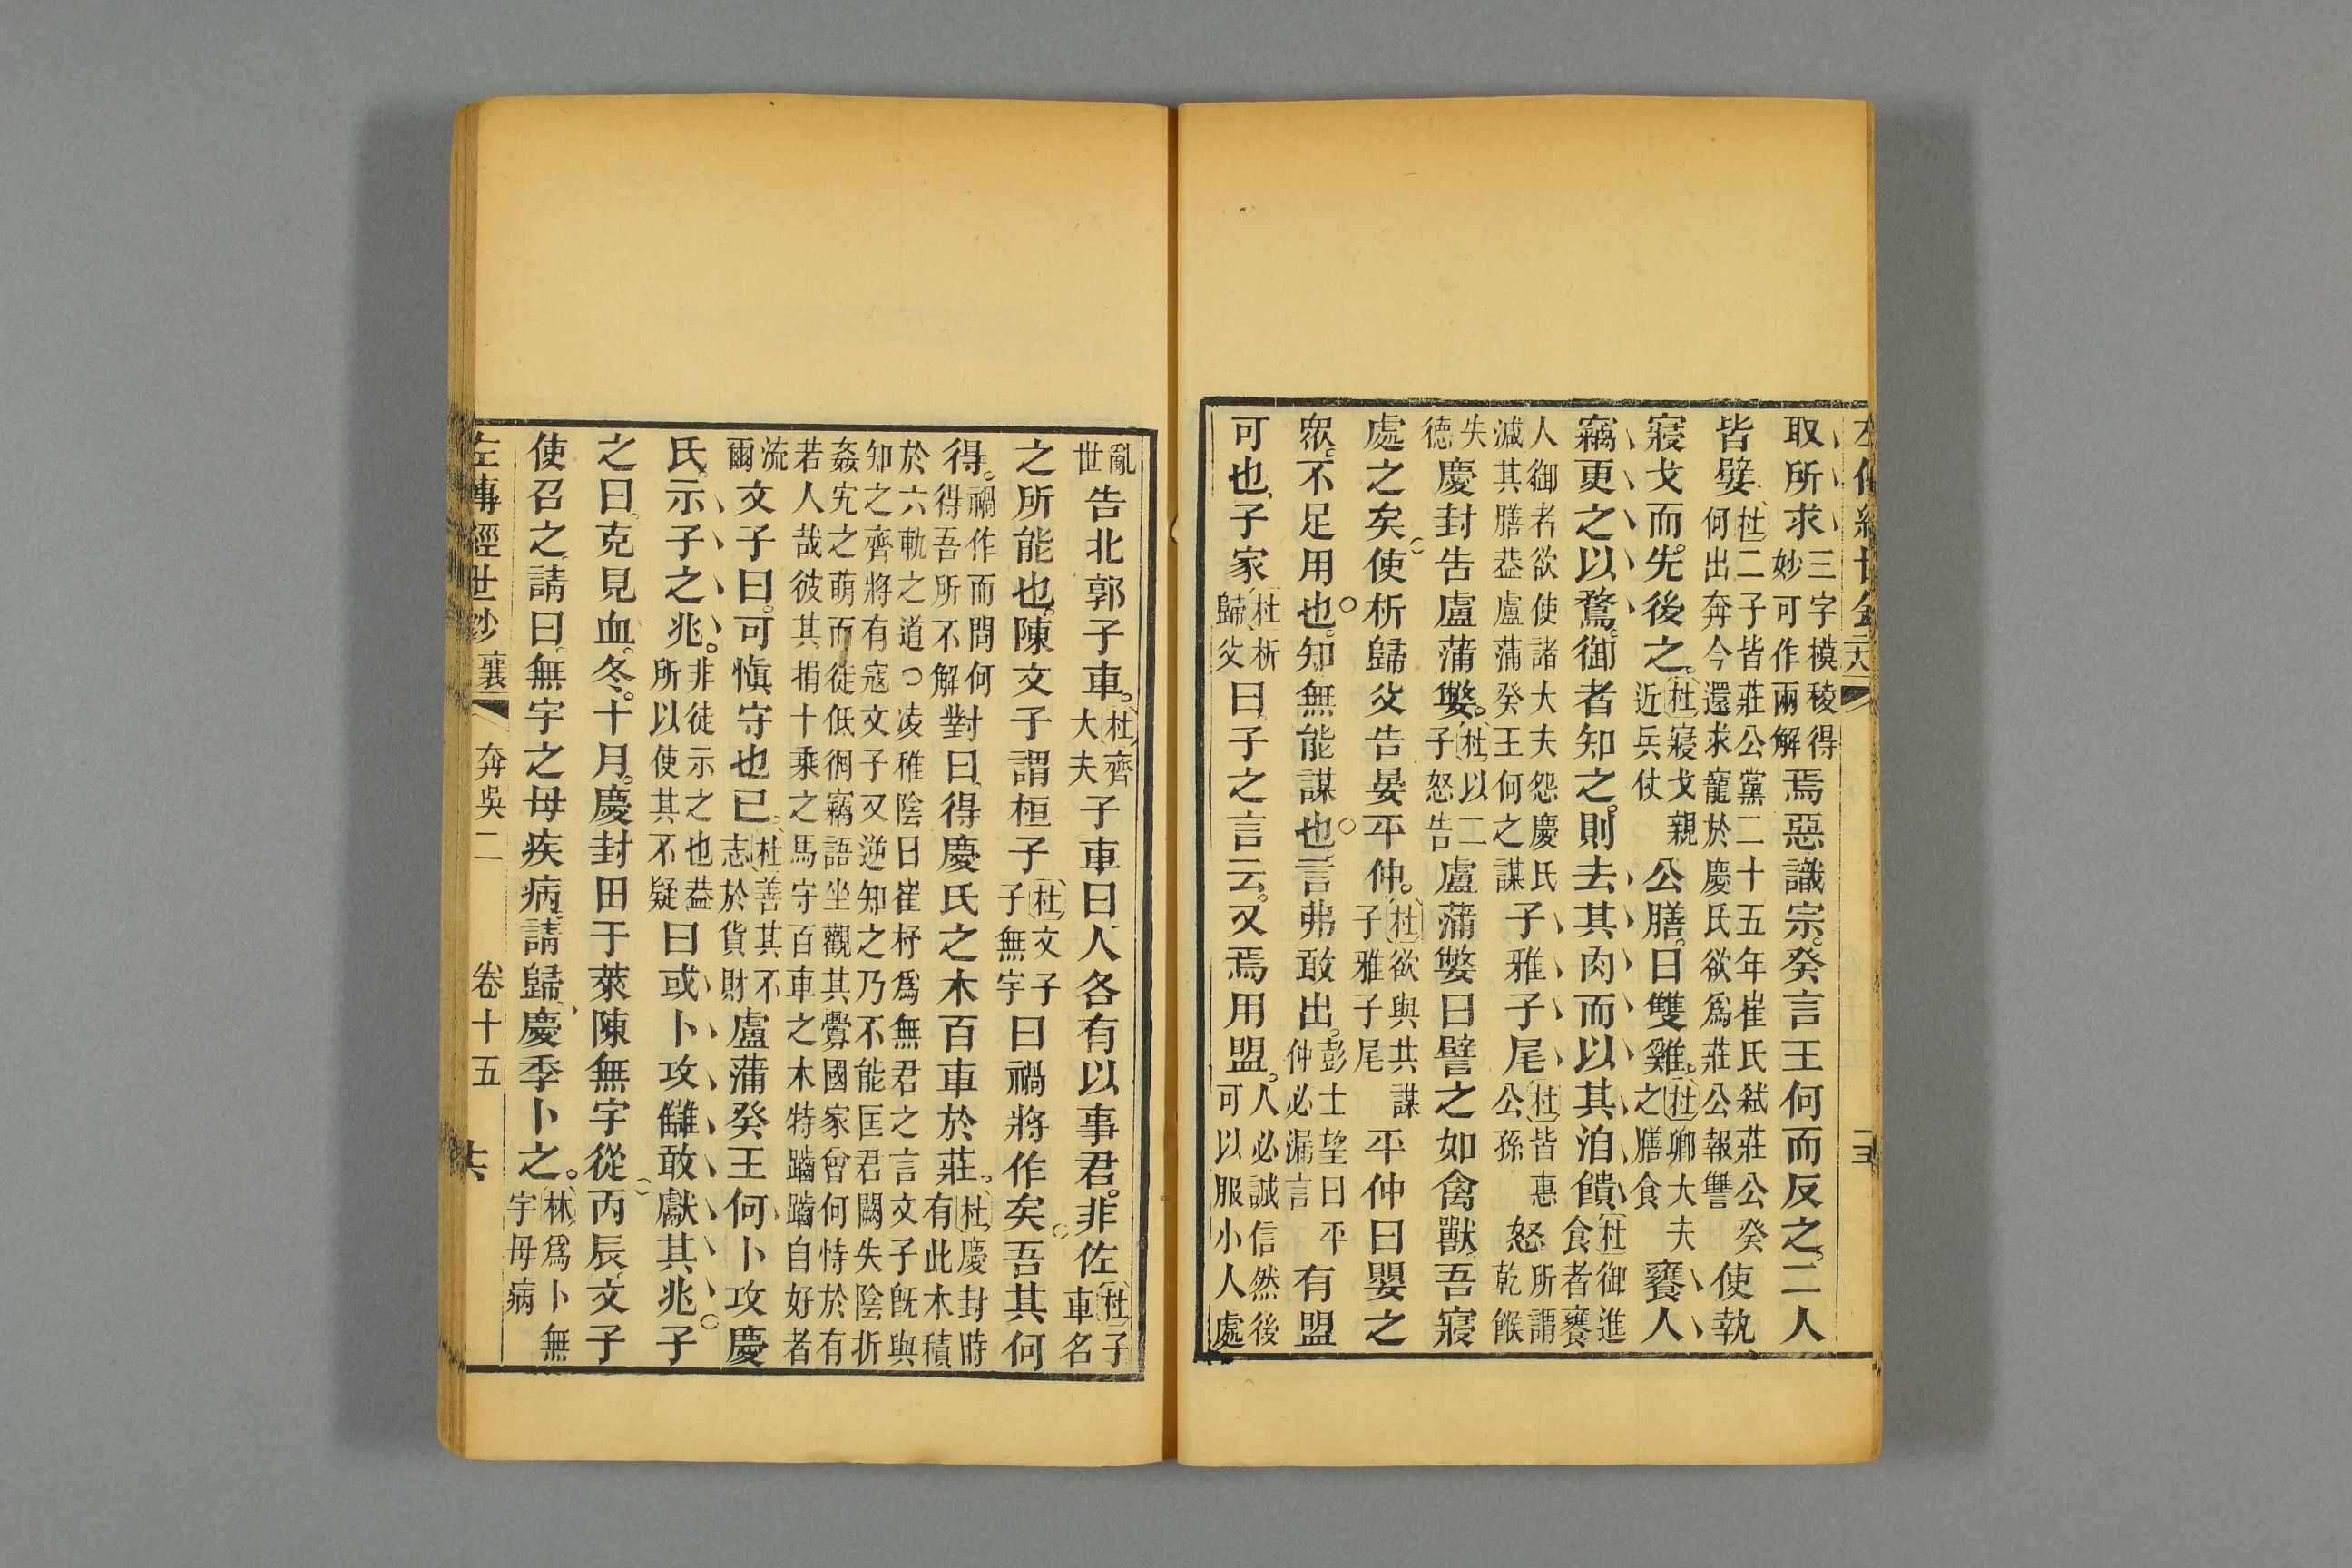 取所求三字模稜得妙可作兩解焉惡識宗。癸言王何而反之。二人
皆嬖杜二子皆莊公黨二十五年崔氏弒莊公癸何出奔今還求寵於慶氏欲爲莊公報讐使執
寢戈而先後之。杜寢戈親近兵仗公膳。日雙雞。杜卿大夫之膳食饔人
竊更之以鶩。御者知之。則去其肉而以其洎饋杜御進食者饔
人御者欲使諸大夫怨慶氏減其膳葢盧蒲癸王何之謀子雅子尾杜皆惠公孫怒所謂乾餱
失德慶封告盧蒲嫳。杜以二子怒告盧蒲嫳曰譬之如禽獸吾寢
處之矣使析歸父告晏平仲。杜欲與共謀子雅子尾平仲曰嬰之
眾。不足用也。知無能謀也言弗敢出。彭士望曰平仲必漏言有盟
可也子家杜析歸父曰子之言云。又焉用盟。人必誠信然後可以服小人處
亂世告北郭子車。杜齊大夫子車曰人各有以事君。非佐杜子車名
之所能也。陳文子謂桓子杜文子子無宇曰禍將作矣吾其何
得。禍作而問何得吾所不解對曰得慶氏之木百車於莊。杜慶封時有此木積
於六軌之道○凌稚陰曰崔杼爲無君之言文子旣與知之齊將有寇文子又逆知之乃不能匡君闕失陰折
姦宄之萌而徒低徊竊語坐觀其釁國家曾何恃於有若人哉彼其捐十乘之馬守百車之木特自好者
流爾文子曰。可愼守也已。杜善其不志於貨財盧蒲癸王何卜攻慶
氏示子之兆。非徒示之也葢所以使其不疑曰或卜攻讎敢獻其兆子
之曰克見血。冬。十月。慶封田于萊陳無宇從丙辰文子
使召之請曰無宇之母疾病請歸慶季卜之。林爲卜無宇母病
左傳經世鈔 襄 奔吳二 卷十五